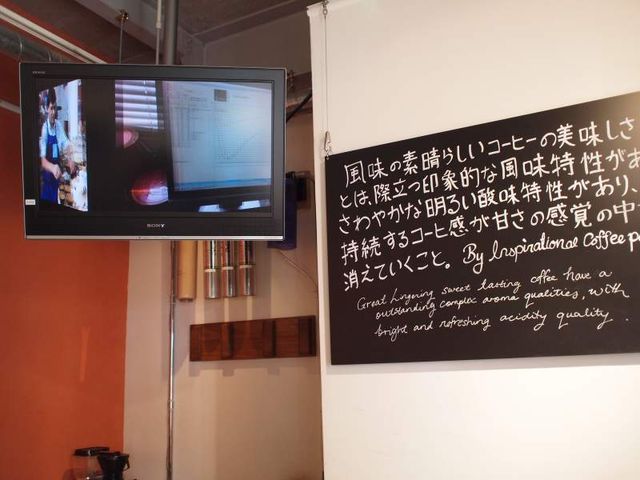 SONY
風味の素晴らしいコーヒーの美味しさ
とは、際立つ印象的な風味特性があ
さわやかな明るい酸味特性があり、
持続するコーヒ感が甘さの感覚の中
消えていくこと。By Inspirational Coffee
Great Lingering sweet tasting coffee have a
outstanding complex aroma qualities, with
bright and refreshing acidity quality.